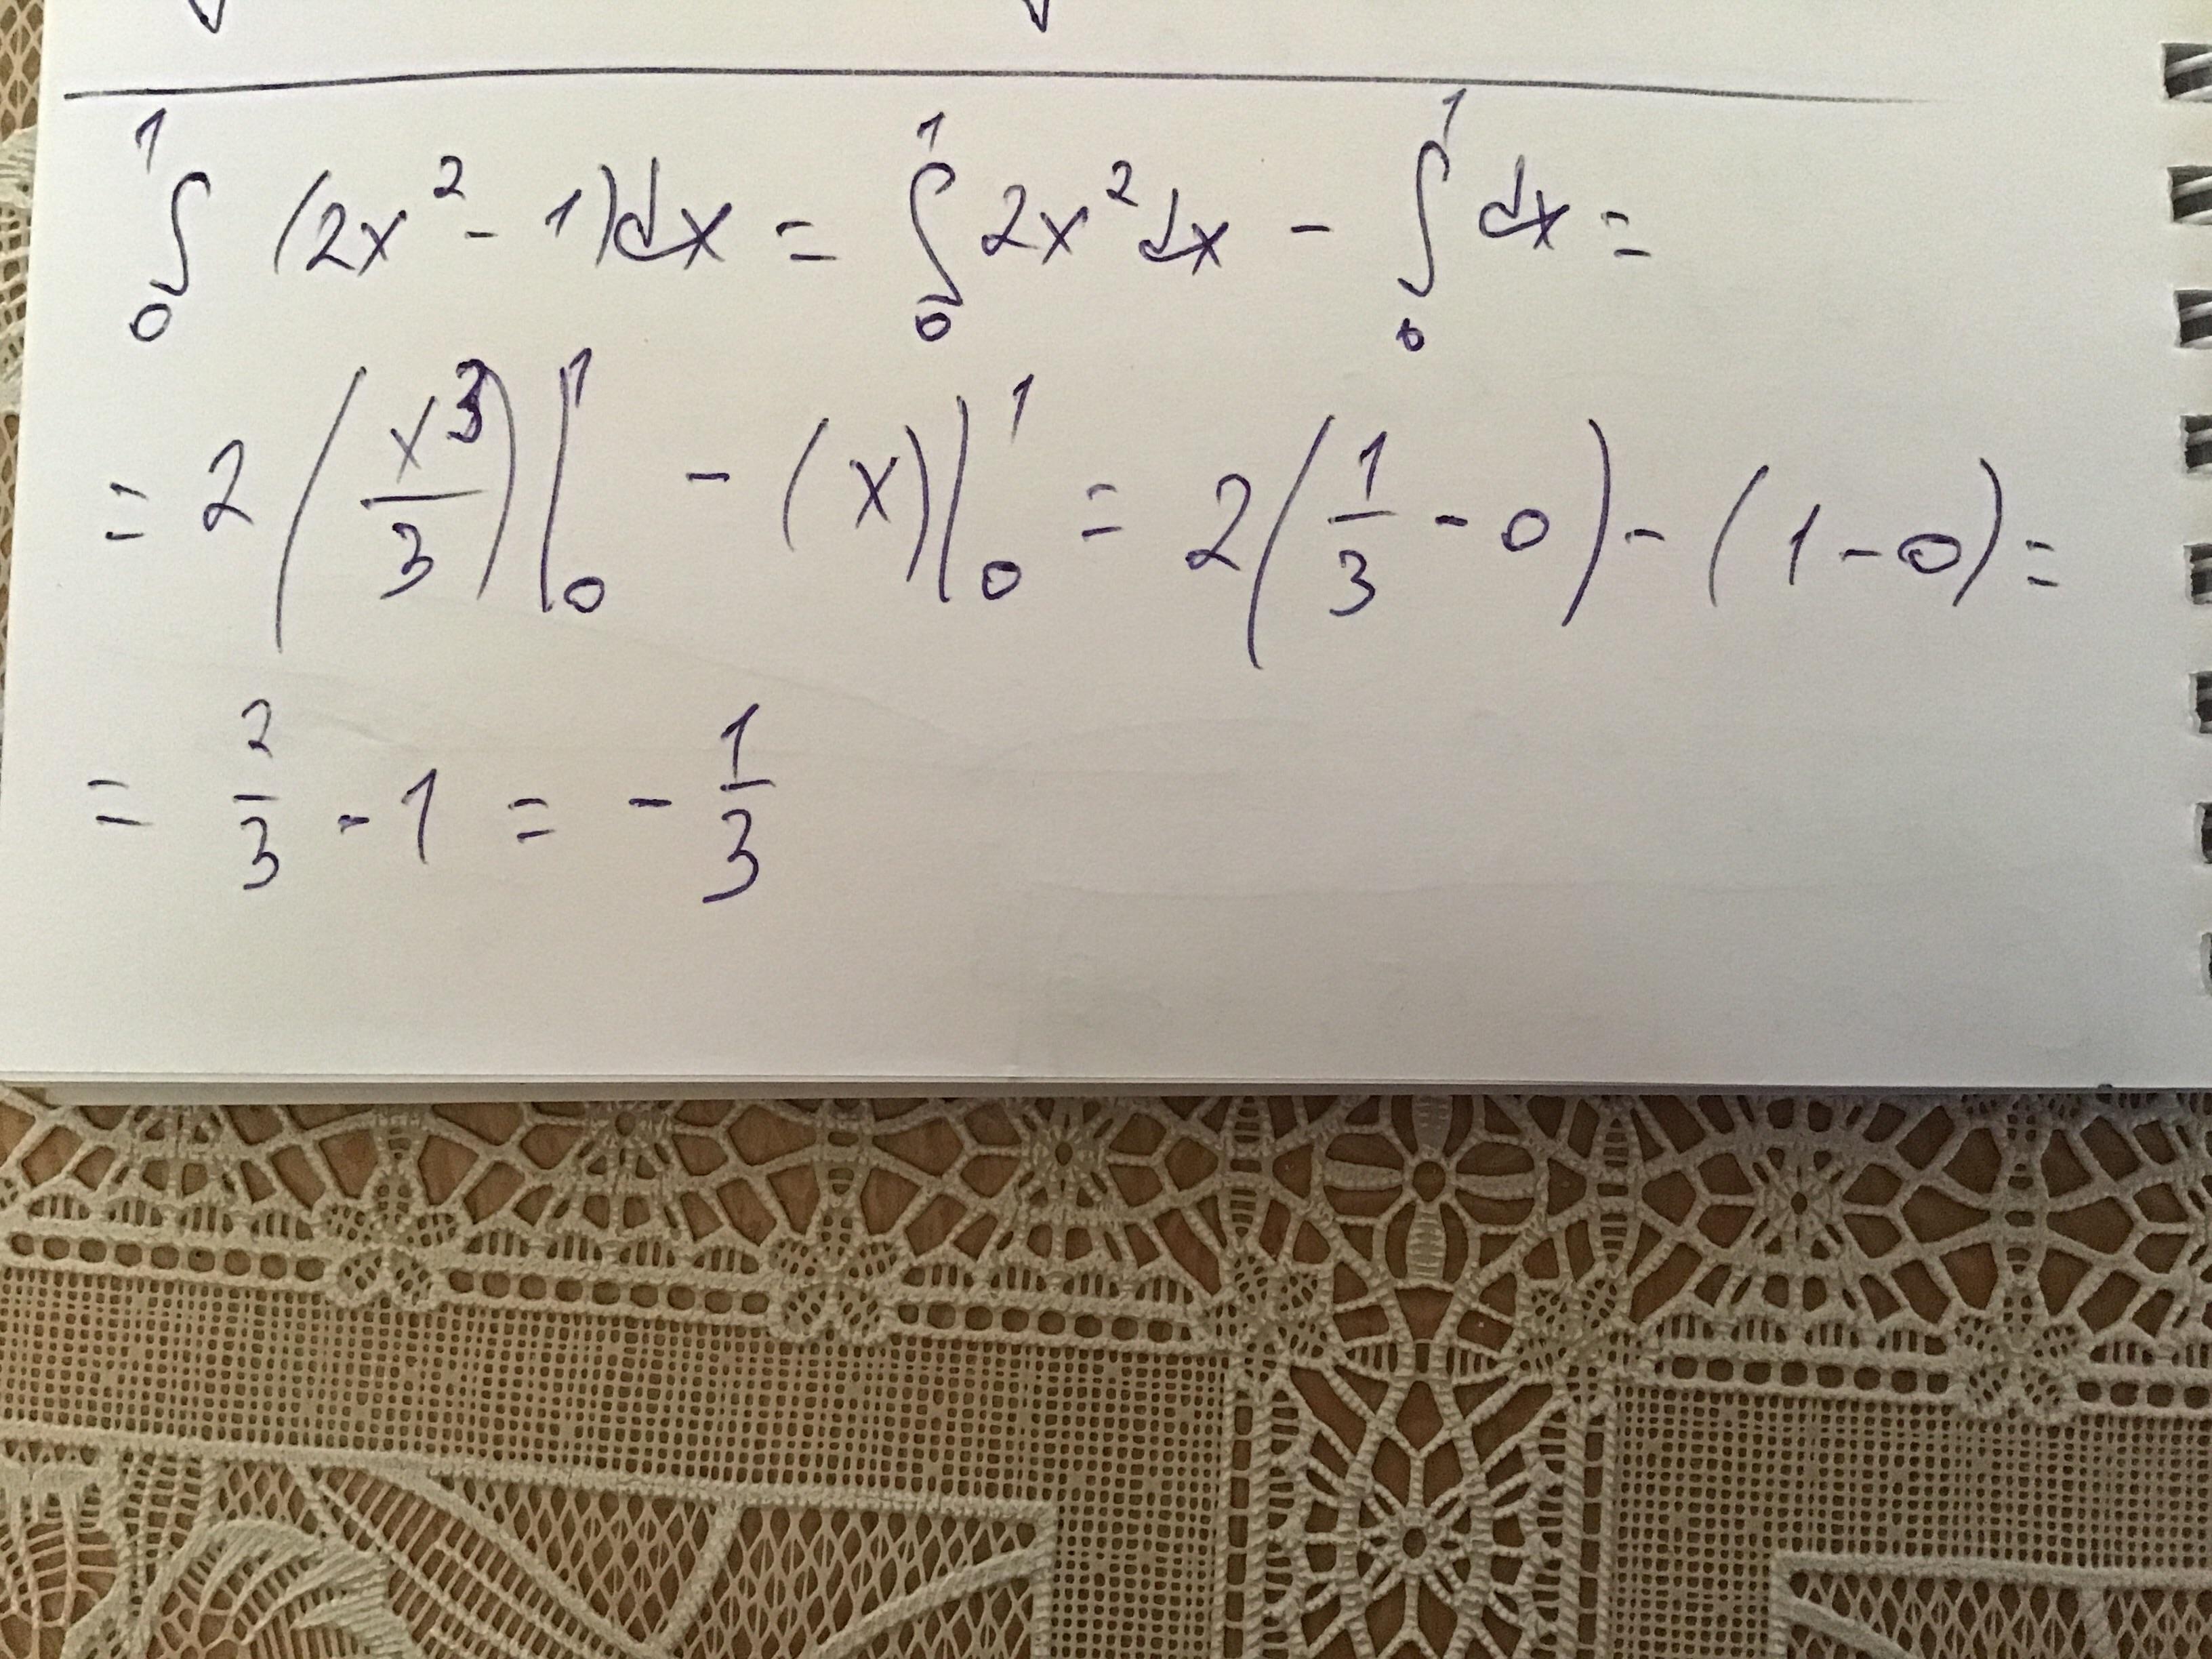 ∫₀¹ (2x² - 1)dx = ∫₀¹ 2x² dx - ∫₀¹ dx =
= 2(x³/3)|₀¹ - (x)|₀¹ = 2(1/3 - 0) - (1 - 0) =
= 2/3 - 1 = - 1/3